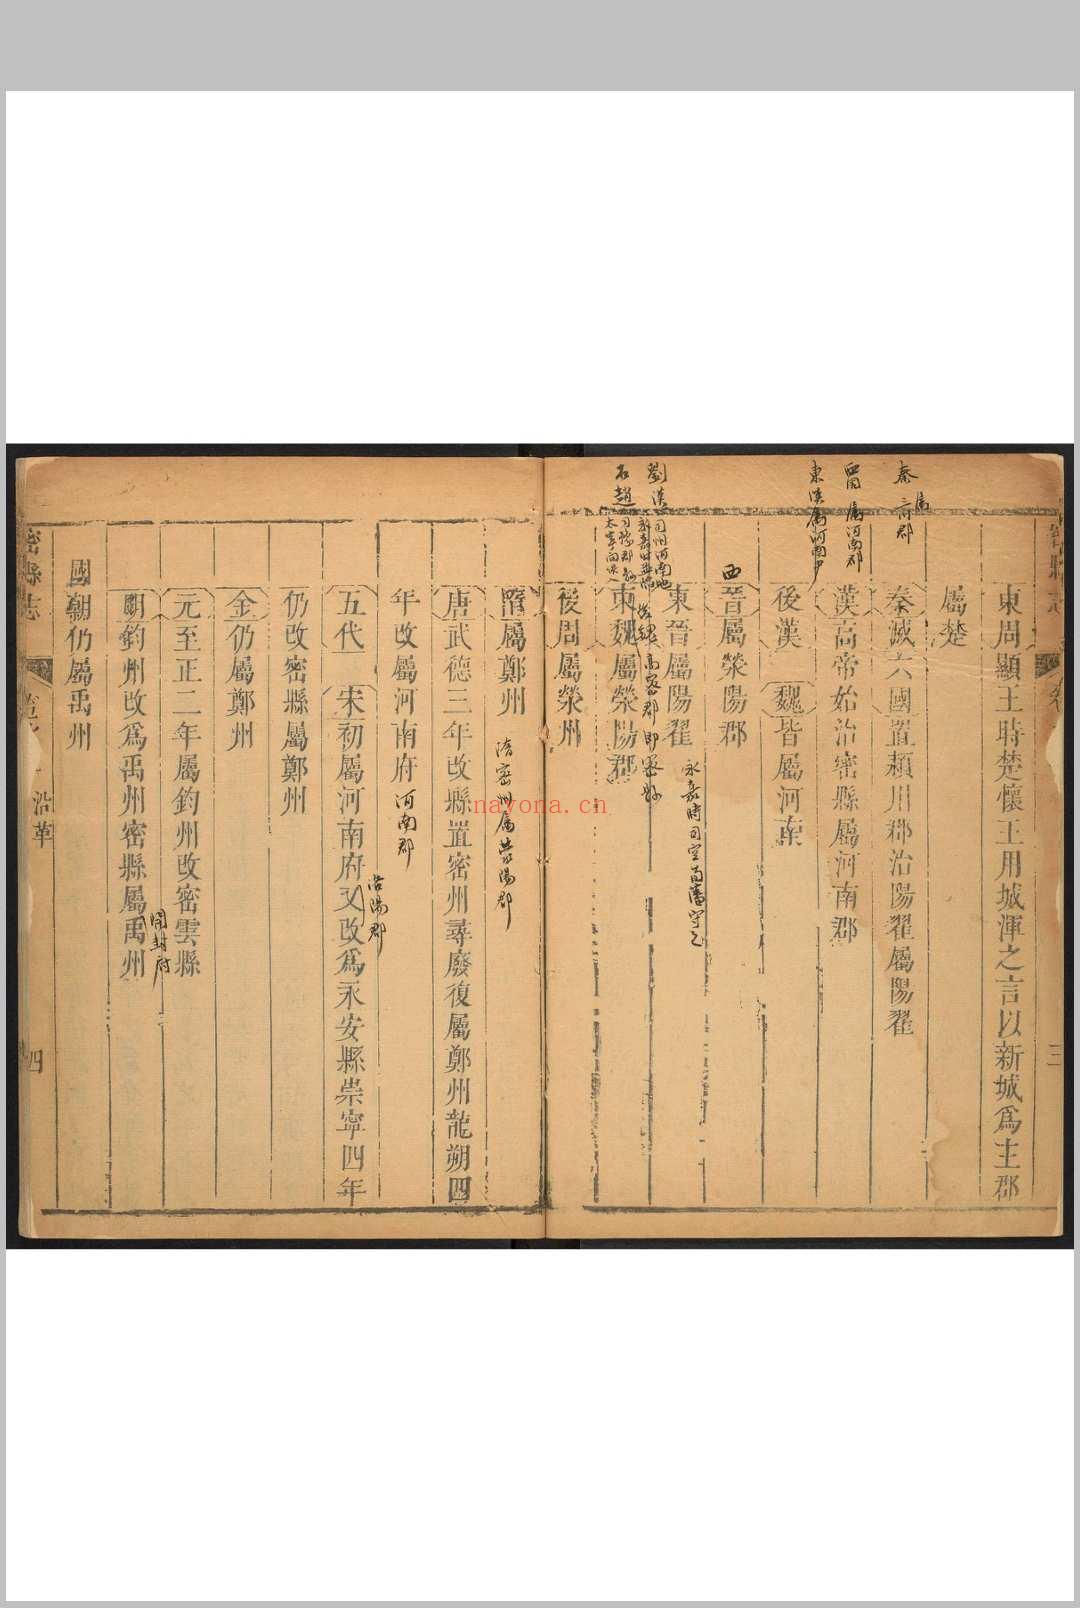 東周顯王時楚懷王用城渾之言以新城爲主郡
屬楚
秦滅六國置潁川郡治陽翟屬陽翟
秦屬三川郡
漢高帝始治密縣屬河南郡
屬河南郡
後漢 魏皆屬河南
東漢屬河南尹
西
晉屬滎陽郡
東晉屬陽翟
永嘉時司空荀藩守之
劉漢
高密郡即密縣
石趙
東魏屬滎陽郡
後周屬滎州
隋屬鄭州
隋密州屬滎陽郡
唐武德三年改縣置密州尋廢復屬鄭州龍朔四
年改屬河南府
河南郡
五代 宋初屬河南府又改爲永安縣崇寧四年
洛陽郡
仍改密縣屬鄭州
金仍屬鄭州
元至正二年屬鈞州改密雲縣
明鈞州改爲禹州密縣屬禹州
開封府
國朝仍屬禹州
密縣志
沿革
四
三
nayona.cn